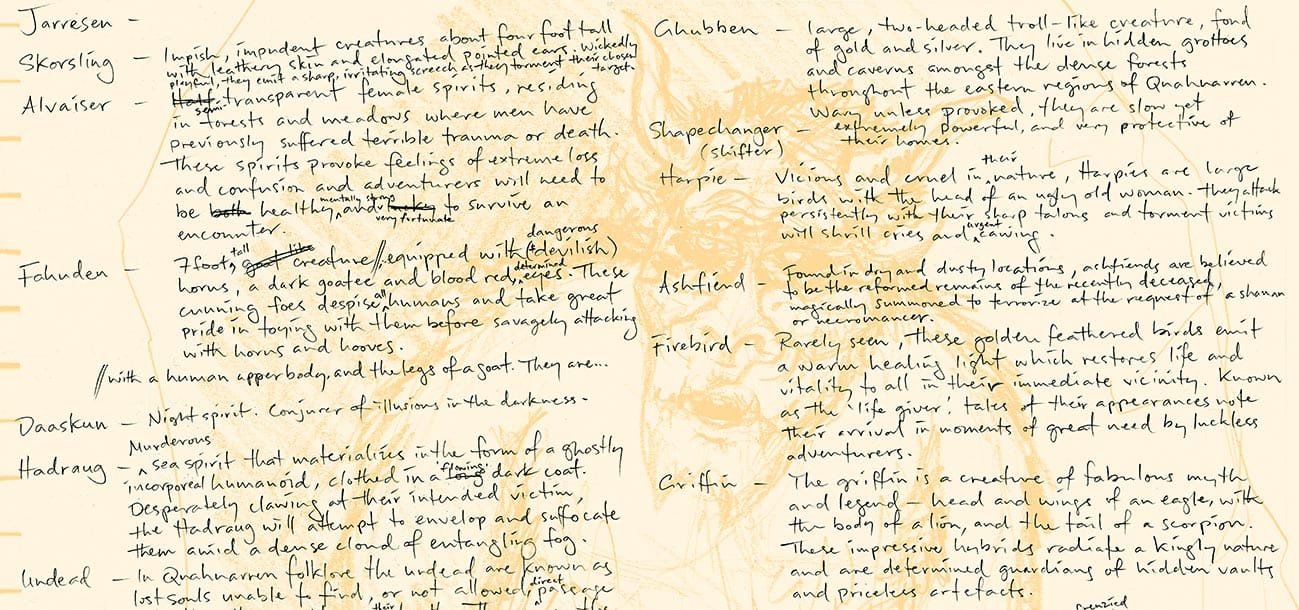 Jarresen –
Skorsling – Impish, impudent creatures about four foot tall
with leathery skin and elongated pointed ears. Wickedly
playful, they emit a sharp, irritating screech as they torment their chosen
target.
Alvaiser – Half semi-transparent female spirits, residing
in forests and meadows where men have
previously suffered terrible trauma or death.
These spirits provoke feelings of extreme loss
and confusion and adventurers will need to
be both healthy, mentally strong and lucky very fortunate to survive an
encounter.
Fahnden – 7 foot, tall goat like creature // equipped with dangerous (& devilish)
horns, a dark goatee and blood red, determined eyes. These
cunning foes despise all humans and take great
pride in toying with them before savagely attacking
with horns and hooves.
// with a human upper body, and the legs of a goat. They are...
Daaskun – Night spirit. Conjurer of illusions in the darkness.
Hadraug – Murderous sea spirit that materializes in the form of a ghostly
incorporeal humanoid, clothed in a long flowing dark coat.
Desperately clawing at their intended victim,
the Hadraug will attempt to envelop and suffocate
them amid a dense cloud of entangling fog.
Undead – In Quahnarren folklore the undead are known as
lost souls unable to find, or not allowed, direct passage
their
Ghubben – large, two-headed troll-like creature, fond
of gold and silver. They live in hidden grottoes
and caverns amongst the dense forests
throughout the eastern regions of Quahnarren.
Wary unless provoked, they are slow yet
extremely powerful, and very protective of
their homes.
Shapechanger –
(shifter)
Harpie – Vicious and cruel in their nature, Harpies are large
birds with the head of an ugly old woman. They attack
persistently with their sharp talons and torment victims
will shrill cries and urgent cawing.
Ashfiend – Found in dry and dusty locations, ashfiends are believed
to be the reformed remains of the recently deceased,
magically summoned to terrorize at the request of a shaman
or necromancer.
Firebird – Rarely seen, these golden feathered birds emit
a warm healing light which restores life and
vitality to all in their immediate vicinity. Known
as the 'life giver', tales of their appearances note
their arrival in moments of great need by luckless
adventurers.
Griffin – The griffin is a creature of fabulous myth
and legend – head and wings of an eagle, with
the body of a lion, and the tail of a scorpion.
These impressive hybrids radiate a kingly nature
and are determined guardians of hidden vaults
and priceless artefacts.
frenzied